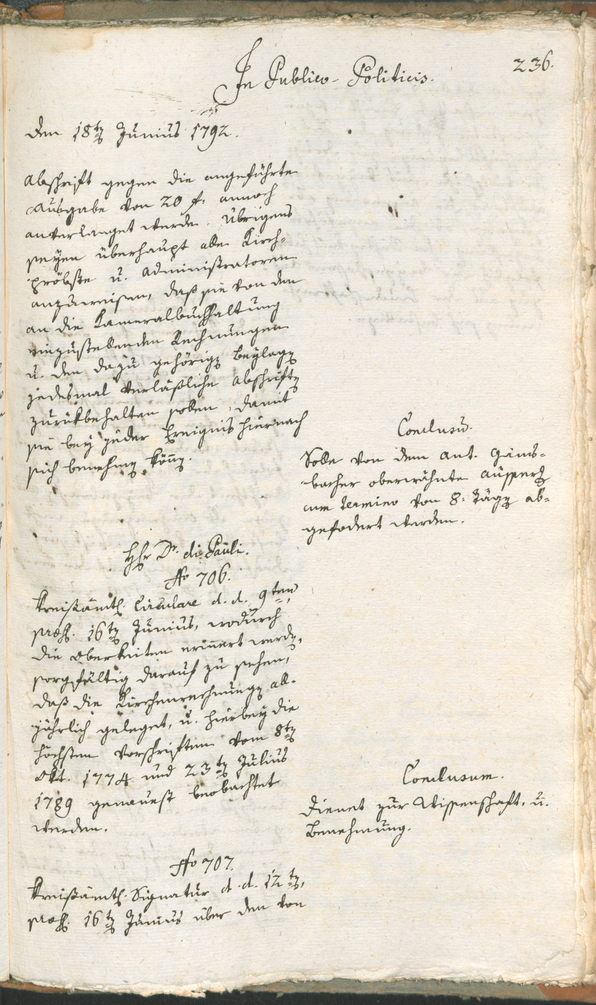 236.
In Publico-Politicis.
den 18t Junius 1792.
Abschrift gegen die angeführte
Ausgabe von 20 f. annoch
anverlanget werde. Übrigens
seyen überhaupt alle Kirch-
pröbste u. Administratoren
anzuweisen, daß sie von den
an die Kameralbuchhaltung
einzustellenden Rechnungen
u. den dazu gehörigen Beylagen
jedesmal verläßliche Abschriften
zurückbehalten sollen, damit
sie bey jeder Ereigniß hiernach
sich benehmen können.
Conclusum.
Solle von dem Ant. Gäns-
bacher oberwähnte Äusserung
cum Termino von 8. Tägen ab-
gefodert werden.
Hhr Dr. di Pauli.
No 706.
Kreisämtl. Circulare d. d. 9ten
præs. 16ten Junius, wodurch
die Obrkeiten erinert werden,
sorgfältig darauf zu sehen,
daß die Kirchenrechnungen all-
jährlich geleget, u. hierbey die
höchsten Vorschriften vom 8ten
Okt. 1774 und 23ten Julius
1789 genauest beobachtet
werden.
Conclusum.
Dienet zur Wissenschaft, u.
Benehmung.
No 707.
Kreisämtl. Signatur d. d. 12ten,
præs. 16ten Junius über den von